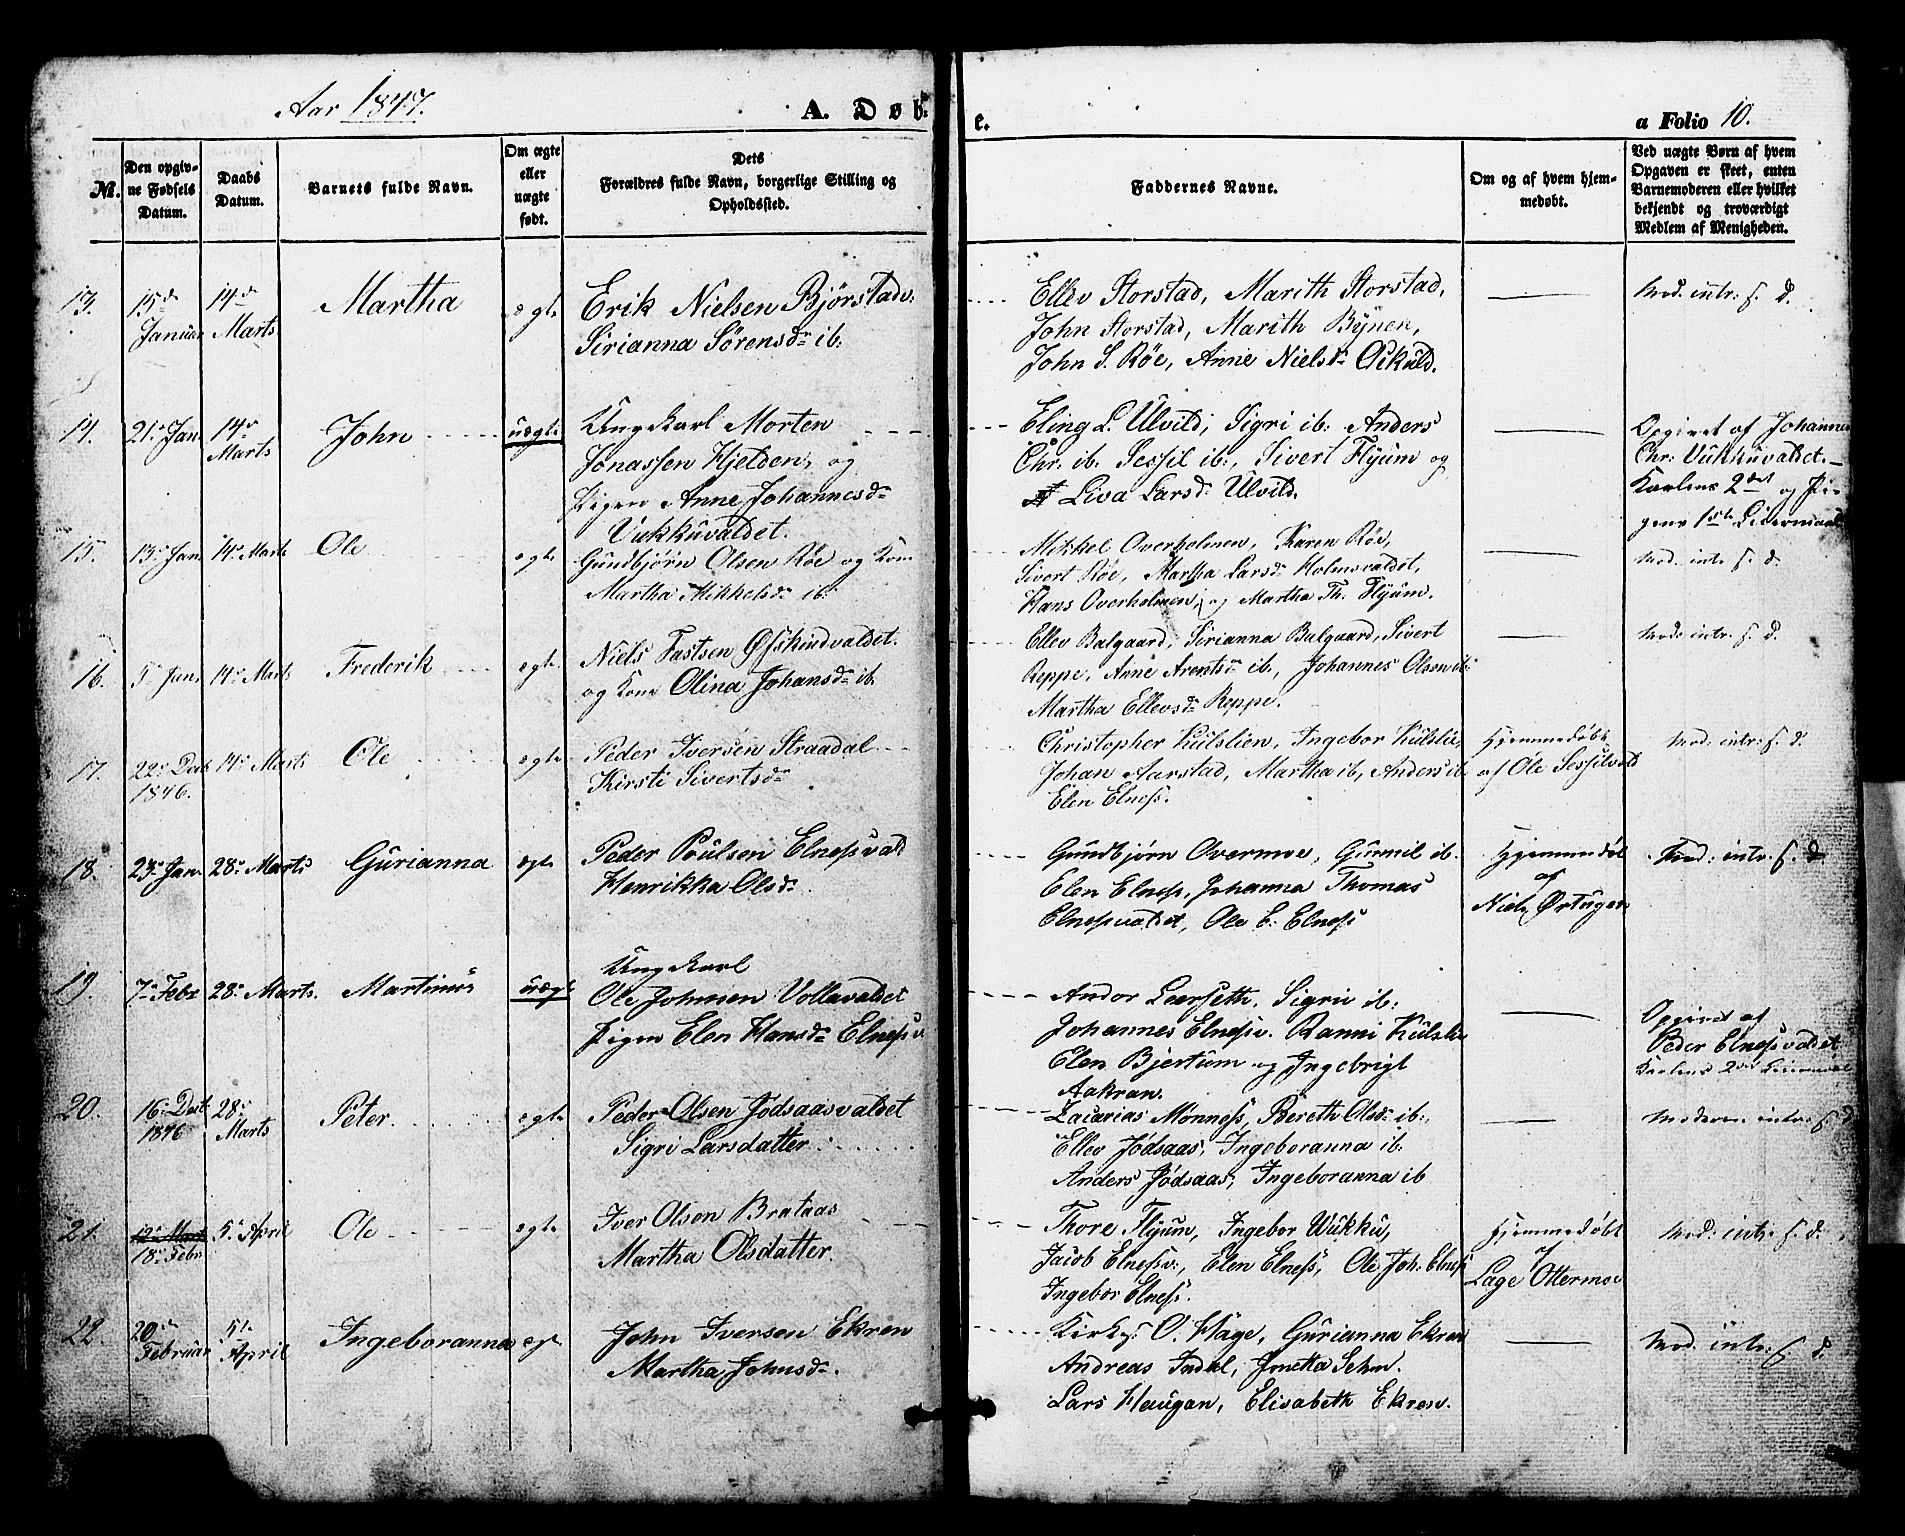 Aar 1847.
A. Døb-
e.
a Folio 10.
No.
Den opgiv-
ne Fødsels
Datum.
Daabs
Datum.
Barnets fulde Navn.
Om ægte
eller
uægte
født.
Dets
Forældres fulde Navn, borgerlige Stilling og
Opholdssted.
Faddernes Navne.
Om og af hvem hjem-
medøbt.
Ved uægte Børn af hvem
Opgaven er skeet, enten
Barnemoderen eller hvilket
bekjendt og troværdigt
Medlem af Menigheden.
13.
15de
Januar
14de
Marts
Martha
ægte
Erik Nielsen Bjørstadv.
Sirianna Sørensdr ib.
Ellev Storstad, Marith Storstad,
John Storstad, Marith Bynen,
John S. Røe, Anne Nielsdr
Mod. intr. s. d.
14.
21de Jan.
14de
Marts
John
uægte
Ungkarl Morten
Jonassen Hjelden, og
Pigen Anne Johannesdr
Vukkuvaldet.
Eling L. Ulvild, Sigri ib. Anders
Chr. ib. Sessil ib., Sivert Flyum og
Liva Larsdr Ulvild.
Opgivet af Johannes
Chr. Vukkuvaldet.
Karlens 2det og Pi-
gens 1ste Leiermaal
15.
13de Jan.
14de Marts
Ole
ægte
Gundbjørn Olsen Røe og Kone
Martha Mikkelsdr ib.
Mikkel Overholmen, Karen Røe,
Sivert Røe, Martha Larsdr Holmsvaldet,
Hans Overholmen, og Martha Th. Flyum.
Mod. intr. s. d.
16.
5de Jan.
14de Marts
Frederik
ægte
Niels Fastsen Østkindvaldet.
og Kone Olina Johansdr ib.
Ellev Balgaard, Sirianna Balgaard, Sivert
Reppe, Anne Arentsdr ib., Johannes Olsen ib.
Martha Ellevsdr Reppe.
Mod. intr. s. d.
17.
22de Decb.
1846.
14de Marts
Ole
ægte
Peder Iversen Straadal
Kirsti Sivertsdr
Christopher Kulslien, Ingebor Kulslie,
Johan Aarstad, Martha ib, Anders ib
Elen Elness.
Hjemmedøbt
af Ole Sessilvold
Mod. intr. s. d.
18.
23de Jan.
28de Marts
Gurianna
ægte
Peder Poulsen Elnessvald
Henrikka Olsdr
Gundbjørn Overmoe, Gunnil ib.
Elen Elness, Johanna Thomas
Elnessvaldet, Ole E. Elness
Hjemmedøbt
af
Niels Ørtugen
Mod: intr. s. d.
19.
7de Febr
28de Marts.
Martinus
uægte
Ungkarl
Ole Johnsen Vollavaldet
Pigen Elen Hansdr Elnessv
Andor Leerseth, Sigrii ib.
Johannes Elnessv. Ranni Kulslie
Elen Bjertum og Ingebrigt
Aakran.
Opgivet af
Peder Elnessvaldet
Karlens 2det Leiermaal
20.
16de Decb.
1846
28de
Marts
Peter
ægte
Peder Olsen Jødsaasvaldet
Sigri Larsdatter
Zacarias Monness, Bereth Olsdr ib.,
Ellev Jødsaas, Ingeboranna ib.
Anders Jødsaas, Ingeboranna ib
Moderen intr. s. d.
21.
12te Marts
18de Febr.
5te April
Ole
ægte
Iver Olsen Brataas
Martha Olsdatter.
Thore Flyum, Ingebor Wukku,
Jacob Elnessv., Elen Elness, Ole Joh. Elness
Ingebor Elness.
Hjemmedøbt
af
Lage Ottermoe
Mod: intr. s. d.
22.
20de
Februar
5te
April
Ingeboranna
ægte
John Iversen Ekren
Martha Johnsdr.
Kirkes. O. Hage, Gurianna Ekren
Andreas Indal, Jonetta Sehm.
Lars Haugan, Elisabeth Ekren.
Mod. intr: s. d.